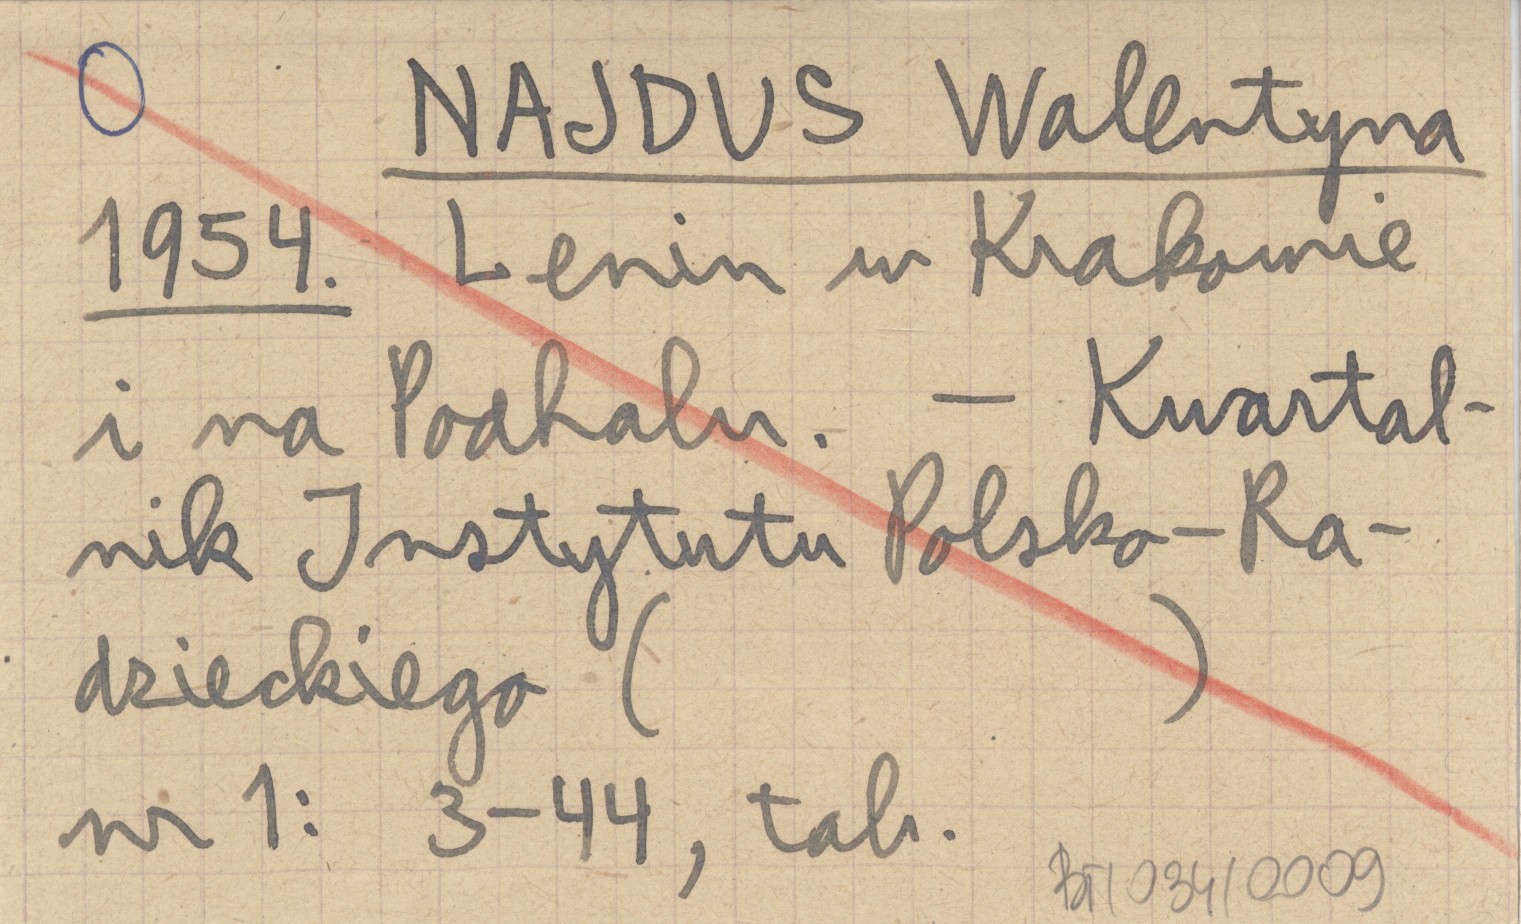 O NAJDUS Walentyna
1954. Lenin w Krakowie
i na Podhalu. – Kwartal-
nik Instytutu Polsko-Ra-
dzieckiego ( )
nr 1: 3–44, tab.
BT/034/0009